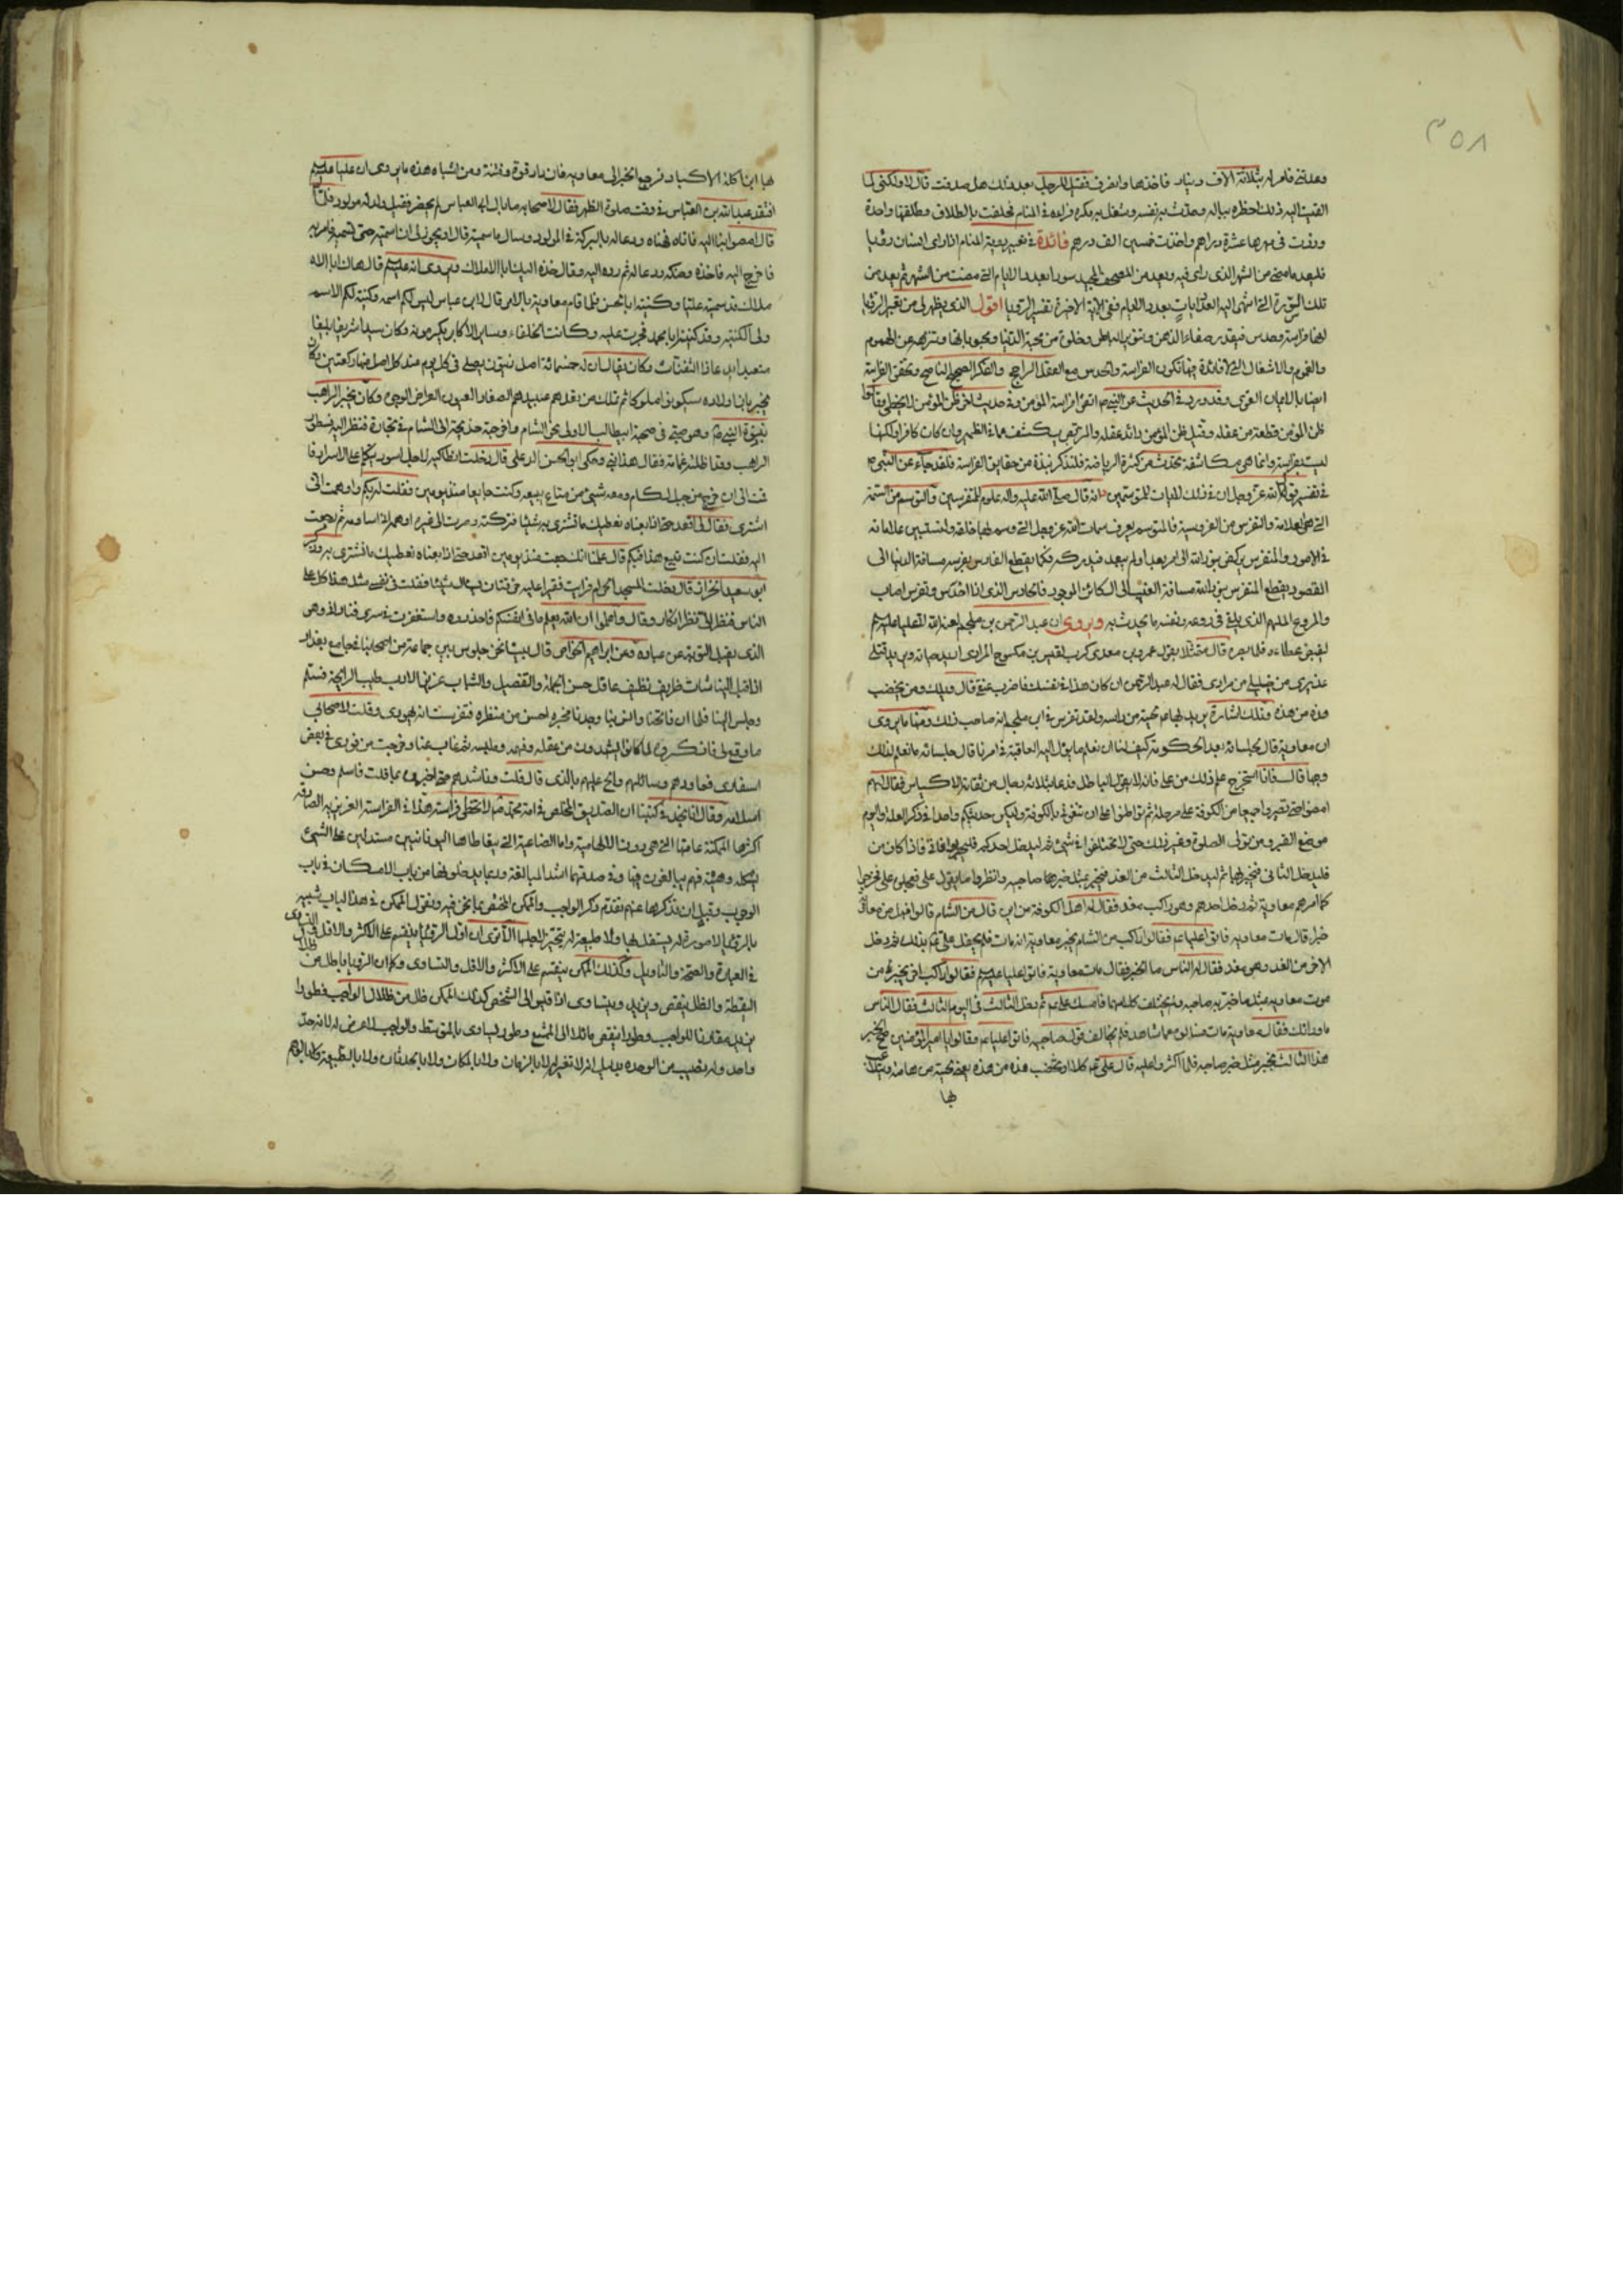 ٣٥٨
وعدتني فامر له بثلاثة الاف دينار فاخذها وانصرف فقيل للرجل بعد ذلك هل صدقت قال لا ولكني لما
القيت اليه ذلك اخطره بباله وحدث به نفسه وشغل به فكره فرآه في المنام فحلفت بالطلاق وطلقتها واحدة
ووفت في مهرها عشرة دراهم واخذت خمسين الف درهم فائدة في تعبير رؤية المنام اذا راى انسان رؤيا
فليعد ما مضى من الشهر الذي راى فيه ويعد من المصحف المجيد سورا بعدد الايام التي مضت من الشهر ثم يعد من
تلك السورة التي انتهى اليها العد ايات بعدد الايام ففي الاية الاخيرة تفسير الرؤيا اقول الذي يظهر لي من تعبير الرؤيا
انها فراسة وحدس فيقدر صفاء الذهن ونور الباطن وخلوه من محبة الدنيا ومحبوباتها وتنزهه عن الهموم
والغموم والاشغال التي لا فائدة فيها تكون الفراسة والحدس مع العقل الراجح والفكر الصحيح الناصح وتحقق الفراسة
ايضا بالايمان القوي وقد ورد في الحديث عن النبي ص اتقوا فراسة المؤمن وفي حديث اخر ظن المؤمن لا يخطي وقالوا
ظن المؤمن قطعة من عقله وقيل ظن المؤمن رائد عقله والمرتاض يكشف عما في الضمير وان كان كافرا ولكنها
ليست بفراسة وانما هي مكاشفة تحدث من كثرة الرياضة فلنذكر نبذة من حقايق الفراسة فلقد جاء عن النبي ص
في تفسير قول الله عز وجل ان في ذلك لايات للمتوسمين انه قال صلى الله عليه واله علوم المتفرسين والتوسم من السمة
التي هي العلامة والتفرس من الفروسية فالمتوسم يعرف سمات الله عز وجل التي وسم بها خلقه
في الامور والمتفرس يركض بنور الله الى امر بعيد او لم يبعد فيدركه فكما يقطع الفارس بفرسه مسافة الدنيا الى
المقصود يقطع المتفرس بنور الله مسافة الغيب الى الكائن الموجود فالحادس الذي اذا حدس وتفرس اصاب
والمروع الملهم الذي يلقى في روعه ونفسه ما يحدث به ويروى ان عبد الرحمن بن ملجم لعنه الله اتى عليا عليه السلم
ليقبض عطاءه فلما بصره قال متمثلا بقول عمرو بن معدي كرب لقيس بن مكشوح المرادي اريد حياته ويريد قتلي
عذيري من خليلي من مرادي فقال له عبد الرحمن ان كان هذا في نفسك فاضرب عنقي قال ويلك ومن يخضب
هذه من هذه وتلك اشارة يريد بها عم لحيته من راسه ولقد تفرس في ابن ملجم انه صاحب ذلك ومنها ما يروى
ان معاوية قال لجلسائه بعد الحكومة كيف لنا ان نعلم ما يؤل اليه العاقبة في امرنا قال جلسائه ما نعلم لذلك
وجها قال فانا استخرج علم ذلك من علي فانه لا يقول الباطل فدعا بثلاثة رجال من ثقاته الاكياس فقال لهم
امضوا حتى تصيروا جميعا من الكوفة على مرحلة ثم تواطئوا على ان تنعوني بالكوفة وليكن حديثكم واحدا في ذكر العلة واليوم
موضع القبر ومن تولى الصلوة وغير ذلك حتى لا تختلفوا في شيئ ثم ليدخل احدكم فليخبر بوفاتي فاذا كان من
فليدخل الثاني فيخبر بها ثم ليدخل الثالث من الغد فيخبر بمثل خبرهما صاحبيه وانظروا ما يقول علي فعجلوا على فخرجوا
كما امرهم معاوية ثم دخل احدهم وهو راكب مغذ فقال له اهل الكوفة من اين قال من الشام قالوا
خبر قال مات معاوية فاتوا عليا عم فقالوا راكب من الشام يخبر معاوية انه مات فلم يحفل علي عم بذلك ثم دخل
الاخر من الغد وهو مغذ فقال له الناس ما الخبر فقال مات معاوية فاتوا عليا عليه السلم فقالوا راكب اخر يخبر عن
موت معاوية بمثل ما خبر به صاحبه ولم يختلف كلامهما فامسك علي عم ثم دخل الثالث في اليوم الثالث فقال الناس
ما ورائك فقال له معاوية مات فسالوه عما شاهد فلم يخالف قول صاحبيه فاتوا عليا عم وقالوا يا امير المؤمنين صح الخبر
هذا الثالث يخبر مثل خبر صاحبه فلما اكثروا عليه قال علي عم كلا او تخضب هذه من هذه يعني لحيته من هامته
بها
بها ابن اكلة الاكباد فرجع الخبر الى معاوية ومن اشباه هذه ما يروى ان عليا عليه السلم
افتقد عبد الله بن العباس في وقت صلوة الظهر فقال لاصحابه ما بال ابو العباس لم يحضر فقيل ولد له مولود فلما
قال امضوا بنا اليه فاتاه فهناه ودعا له بالبركة في المولود وسال ما سميته قال او يجوز لي ان اسميه حتى تسميه فامر به
فاخرج اليه فاخذه وحنكه ودعا له ثم رده اليه وقال خذه اليك ابا الاملاك ويروى انه عليه السلم قال هاك ابا
ملاك قد سميته عليا وكنيته ابا الحسن فلما قام معاوية بالامر قال لابن عباس ليس لكم اسمه وكنيته لكم الاسم
ولي الكنية وقد كنيته ابا محمد فجرت عليه وكانت الخلفاء وساير الاكابر يكرمونه وكان سيدا شريفا بليغا
متعبدا له خمسمائة اصل زيتون يصلي في كل يوم عند كل اصل منها ركعتين
يخبر بان اولاده سيكونوا ملوكا ثم تملك من بعدهم عبيدهم الصغار العيون العراض الوجوه وكان يخبر الراهب
بنبوة النبي ص وهو صبي في صحبة ابيطالب الاولى نحو الشام واخرجته خديجة الى الشام في تجارة فنظر اليه نسطور
الراهب وقد اظلته غمامة فقال هذا نبي وحكى ابو الحسن قال دخلت انطاكية لاجل اسود يتكلم على الاسرار
خرج من جبل لكام ومعه شيئ من متاع يبيعه وكنت جايعا منذ يومين فقلت له بكم واوهمت اني
اشتري فقال لي اقعد حتى اذا بعناه نعطيك ما تشتري به شيئا فتركته وصرت الى غيره اوهمه اني اساومه ثم رجعت
اليه وقلت ان كنت تبيع هذا فبكم قال عدنا انك جعت منذ يومين اقعد حتى اذا بعناه نعطيك ما تشتري به وقال
ابو سعيد الخراز قال دخلت المسجد الحرام فرايت فقيرا عليه خرقتان فقلت في نفسي مثل هذا كل على
الناس فنظر الي نظر انكار وقال واعلموا ان الله يعلم ما في انفسكم فاحذروه واستغفرت في سري فناداني وهو
الذي يقبل التوبة عن عباده وعن ابراهيم الخواص قال بينا نحن جلوس بين جماعة من اصحابنا في جامع بغداد
اذ اقبل الينا شاب ظريف نظيف عاقل حسن الجملة والتفصيل والشباب غزير الادب طيب الرائحة فسلم
وجلس الينا فلما ان فاتحنا والفينا وجدنا مخبره احسن من منظره فتفرست انه يهودي وقلت لاصحابي
ما وقع لي فانكروني لما كانوا يشهدون من عقله وفهمه ومجلسه ثم غاب عنا وخرجت من فوري في بعض
اسفاري فعاودهم وسائلهم والح عليهم بالذي قال قلت وناشدهم حتى اخبروه بما قلت فاسلم وحسن
اسلامه وقال انا نجد في كتبنا ان الصديق المخلص في امة محمد ص لا تخطي فراسته هذا في الفراسة الغريزية الصادقة
اكثرها الممكنة عامتها التي هي دون الالهامية واما الصناعية التي يتعاطاها اليونانيين مستدلين على الشيئ
بشكله وهيئته فهم يبالغون فيها وفي صدقها اشد المبالغة وربما يدخلونها من باب الامكان في باب
الوجوب وقبل ان نذكرها عنهم نقدم ذكر الواجب والممكن المختص بما نحن فيه ونقول الممكن في هذا الباب شبيه
في العبارة والصحة والتاويل وكذلك الممكن ينقسم على الاكثر والاقل والتساوي وكما ان الرؤيا باطل من
اليقظة والظل ينقص ويزيد ويتساوى اذا قيس الى الشخص كذلك الممكن ظل من ظلال الواجب فطورا
يزيد مقارنا للواجب وطورا ينقص مائلا الى الممتنع وطورا يساوي بالمتوسط والواجب لا عرض له لانه حد
واحد وله نصيب من الوحدة بدليل انه لا تغير له لا بالزمان ولا بالمكان ولا بالحدثان ولا بالطبيعة ولا بالوهم